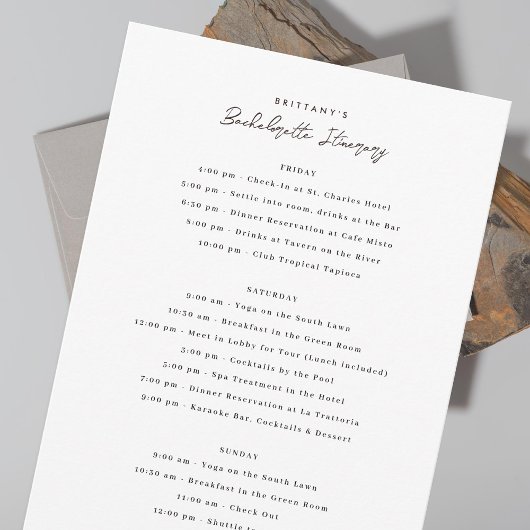 BRITTANY'S
Bachelorette Itinerary
FRIDAY
4:00 pm - Check-In at St. Charles Hotel
5:00 pm - Settle into room, drinks at the Bar
6:30 pm - Dinner Reservation at Cafe Misto
8:00 pm - Drinks at Tavern on the River
10:00 pm - Club Tropical Tapioca
SATURDAY
9:00 am - Yoga on the South Lawn
10:30 am - Breakfast in the Green Room
12:00 pm - Meet in Lobby for Tour (Lunch included)
3:00 pm - Cocktails by the Pool
5:00 pm - Spa Treatment in the Hotel
7:00 pm - Dinner Reservation at La Trattoria
9:00 pm - Karaoke Bar, Cocktails & Dessert
SUNDAY
9:00 am - Yoga on the South Lawn
10:30 am - Breakfast in the Green Room
11:00 am - Check Out
12:00 pm - Shuttle